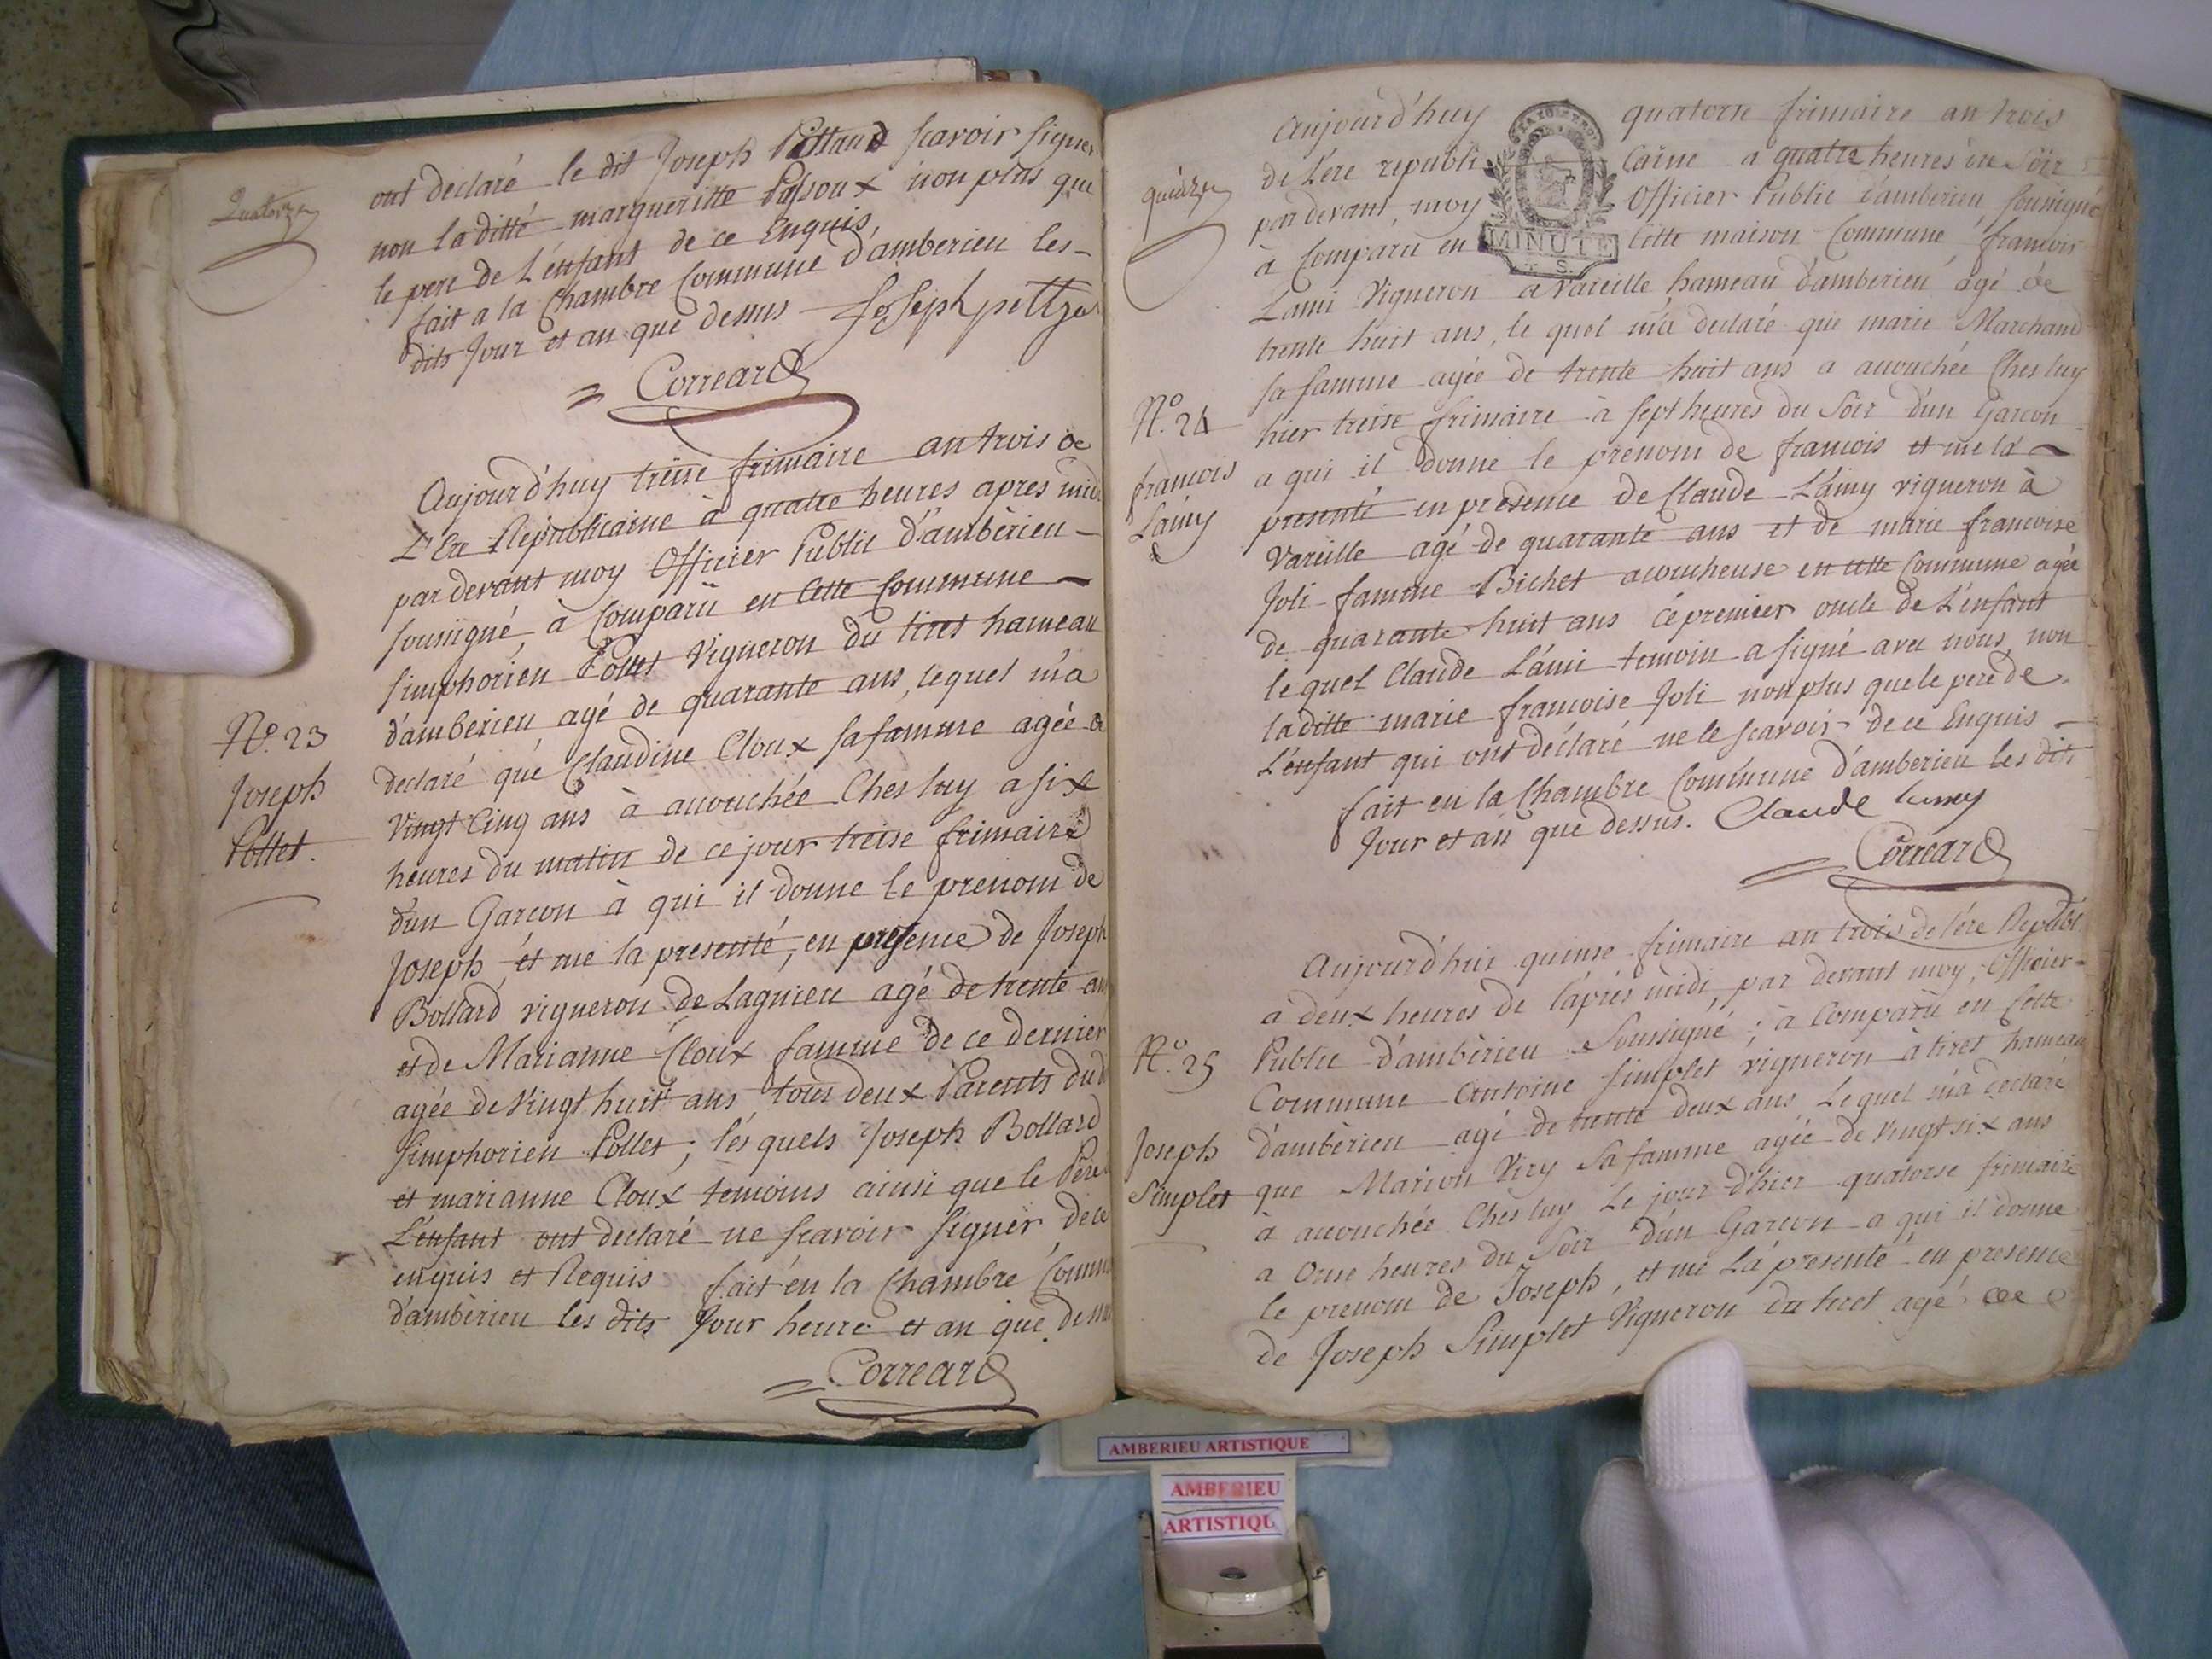 Quatorze
ont declaré le dit Joseph Pittand scavoir signer
non la ditte margueritte Pusoux non plus que
le pere de L'enfant de ce Enquis
fait a la Chambre Commune d'amberieu les
dits Jour et an que dessus Joseph
Correard
Aujourd'huy treise frimaire an trois de
L'Ere Républicaine à quatre heures apres midi
par devant moy Officier Public d'ambèrieu
soussigné, à Comparü en Cette Commune
Simphorien Pollet Vigneron du tiret hameau
d'ambèrieu agé de quarante ans, lequel m'a
N.o 23
Joseph
Pollet.
declaré que Claudine Cloux sa famme agée de
Vingt Cinq ans à acouchée Ches luy a six
heures du matin de ce jour treise frimaire
d'un Garcon à qui il donne le prenom de
Joseph, et me la presenté, en presence de Joseph
Bollard vigneron de Lagnieu agé de trente ans
et de Marianne Cloux famme de ce dernier
agée de Vingt huit ans tous deux Parents dud
Simphorien Pollet; lesquels Joseph Bollard
et marianne Cloux temoins ainsi que le Père
L'enfant ont declaré ne scavoir signer de ce
enquis et Requis fait en la Chambre Commu
d'ambèrieu les dits Jour heure et an que dessus
Correard
quinze
Aujourd'huy quatorse frimaire an trois
de L'ere republi caine a quatre heures du Soir
par devant moy Officier Public d'amberieu soussigné
MINUTE
S.
à Comparu en Cette maison Commune francois
Lami Vigneron a Vareille hameau d'amberieu agé de
trente huit ans, le quel m'a declaré que marie Marchand
sa famme agée de trente huit ans a acouchée Ches luy
N.o 24
francois
Lamy
hier treise frimaire à sept heures du Soir d'un Garcon
a qui il donne le prenom de francois et me la
presenté en presence de Claude Lamy vigneron à
Vareille agé de quarante ans et de marie francoise
Joli famme Bichet acoucheuse en cette Commune agée
de quarante huit ans ce premier oncle de L'enfant
le quel Claude Lami temoin a signé avec nous, non
la ditte marie francoise Joli non plus que le pere de
L'enfant qui ont déclaré ne le scavoir de ce Enquis
fait en la Chambre Commune d'amberieu les dits
Jour et an que dessus. Claude lamy
Correard
Aujourd'hui quinse frimaire an trois de l'ére Republ
a deux heures de l'aprés midi, par devant moy, Officier
N.o 25
Joseph
Simplet
Public d'ambèrieu Soussigné; à Comparü en Cette
Commune Antoine Simplet vigneron à tiret hameau
d'ambèrieu agé de trente deux ans, Lequel m'a declaré
que Marion Viry Sa famme agée de Vingt six ans
à acouchée Ches luy Le jour d'hier quatorse frimaire
a Onse heures du Soir d'un Garcon a qui il donne
le prenom de Joseph, et me La presenté en presence
de Joseph Simplet Vigneron du tiret agé de
AMBERIEU ARTISTIQUE
AMBERIEU
ARTISTIQU